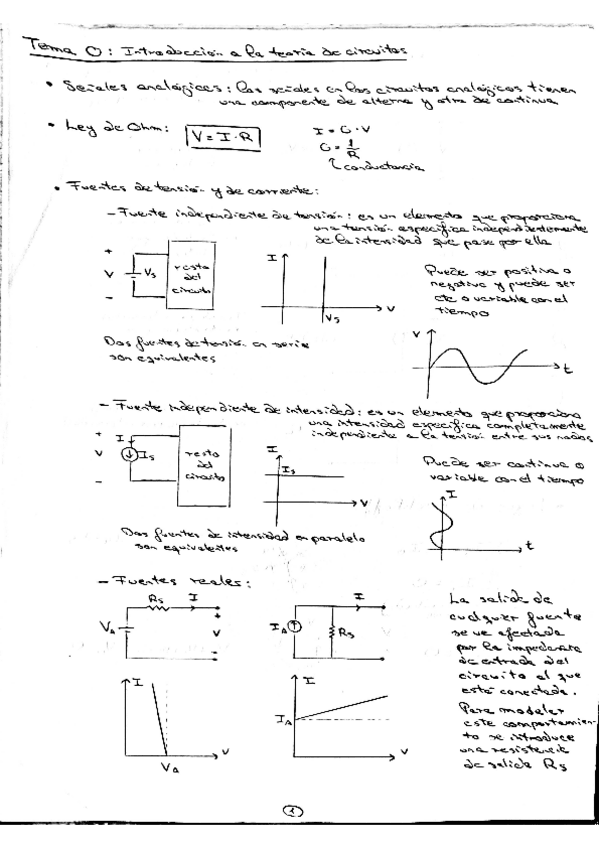 Tema 0: Introducción a la teoría de circuitos
• Señales analógicas: las señales en los circuitos analógicos tienen
una componente de alterna y otra de continua
• Ley de Ohm: V = I·R I = G·V
G = 1/R
conductancia
• Fuentes de tensión y de corriente:
- Fuente independiente de tensión: es un elemento que proporciona
una tensión específica independientemente
de la intensidad que pase por ella
+ V - Vs resto del circuito I Vs V
Puede ser positiva o
negativa y puede ser
cte o variable con el
tiempo
Dos fuentes de tensión en serie
son equivalentes
V t
- Fuente independiente de intensidad: es un elemento que proporciona
una intensidad específica completamente
independiente a la tensión entre sus nodos
+ V - I Is resto del circuito I Is V
Puede ser continua o
variable con el tiempo
I t
Dos fuentes de intensidad en paralelo
son equivalentes
- Fuentes reales:
Rs I VA + V -
I IA Rs
La salida de
cualquier fuente
se ve afectada
por la impedancia
de entrada del
circuito al que
esté conectada.
Para modelar
este comportamien-
to se introduce
una resistencia
de salida Rs
I V VA
I IA V
1